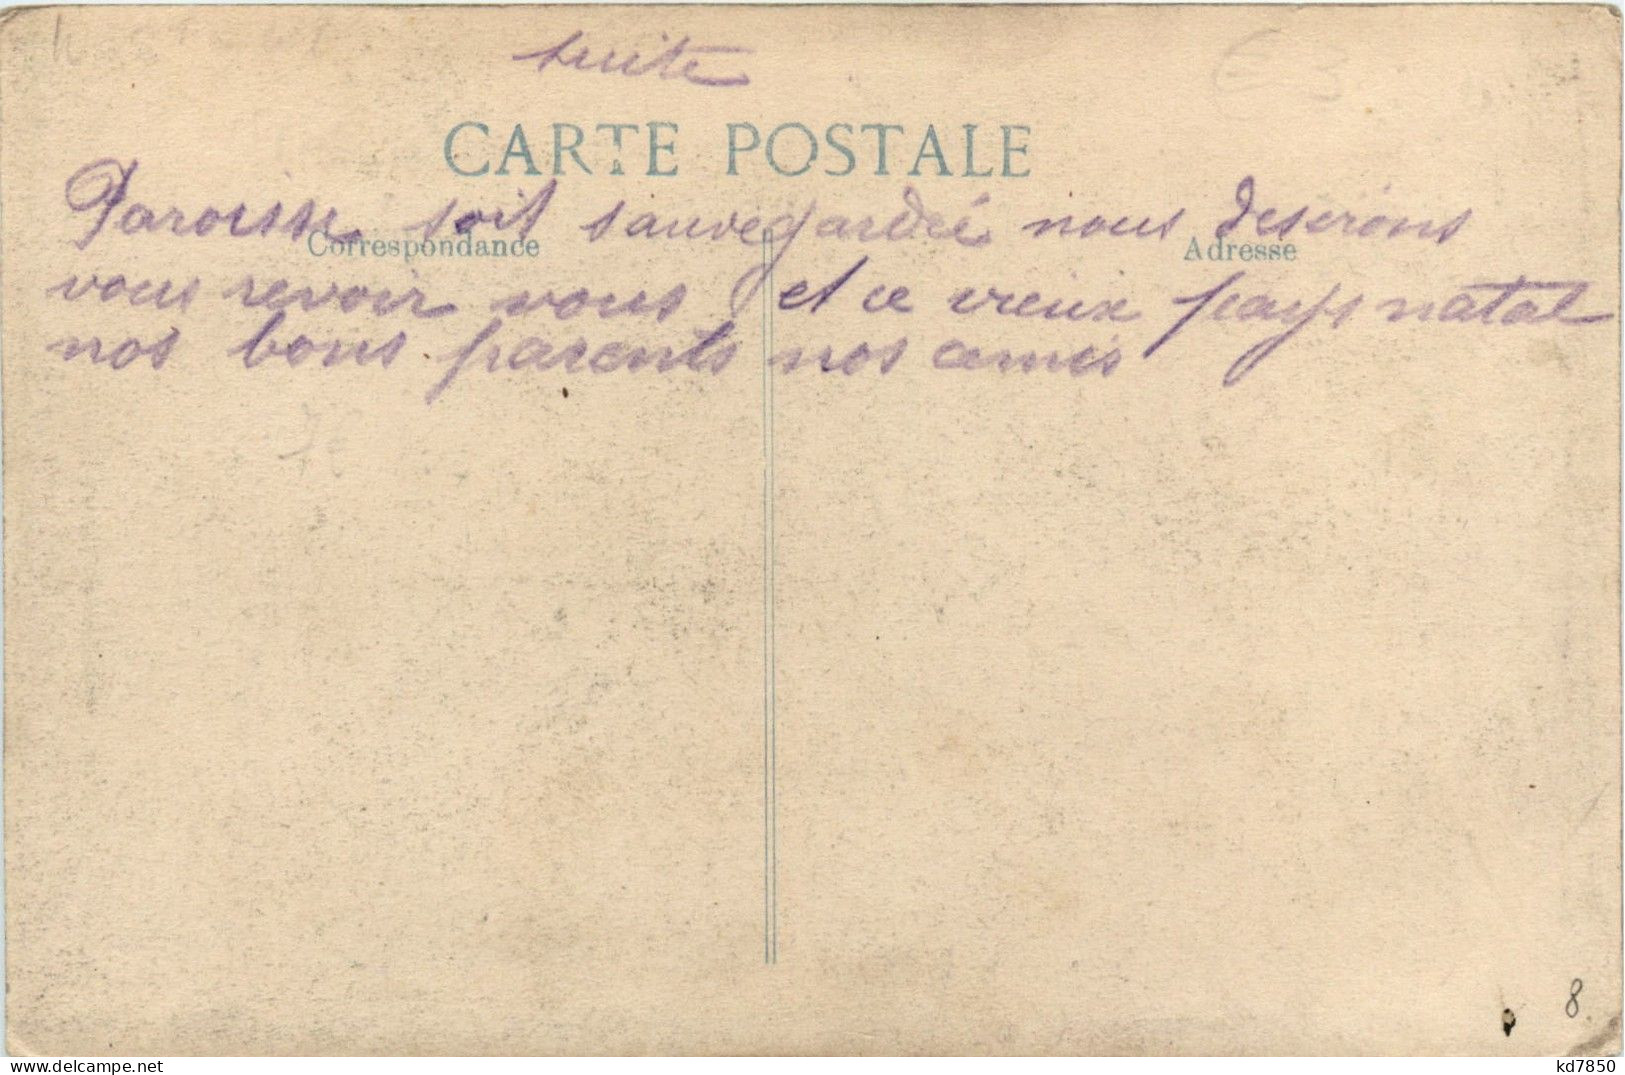 suite
CARTE POSTALE
Paroisse soit sauvegardée nous deserons
Correspondance Adresse
vous revoir vous et ce vieux pays natal
nos bons parents nos amis
8
delcampe.net kd7850